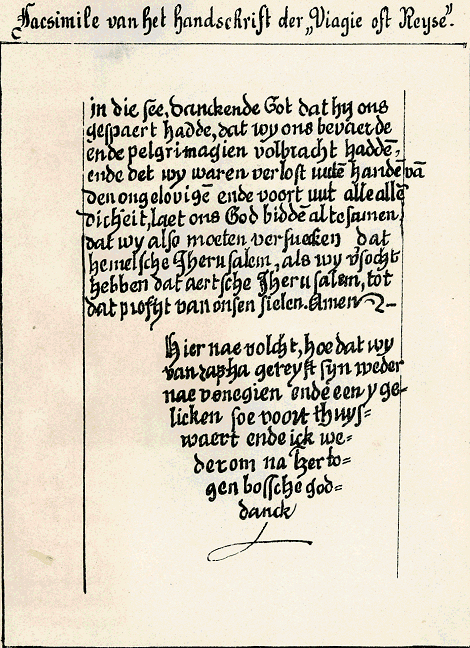 Facsimile van het handschrift der „Viagie oft Reyse”.
in die see, danckende Got dat hy ons
gespaert hadde, dat wy ons bevaerde
ende pelgrimagien volbracht haddē,
ende det wy waren verlost uutē handē vā
den ongelovigē ende voort uut alle allē
dicheit, laet ons God biddē al tesamen
dat wy also moeten versuecken dat
hemelsche Jherusalem, als wy vsocht
hebben dat aertsche Jherusalem, tot
dat profyt van onsen sielen. Amen
Hier nae volcht, hoe dat wy
van rapha gereyst syn weder
nae venegien ende een yge-
licken soe voort thuys=
waert ende ick we=
derom na tzerto=
gen bossche god=
danck